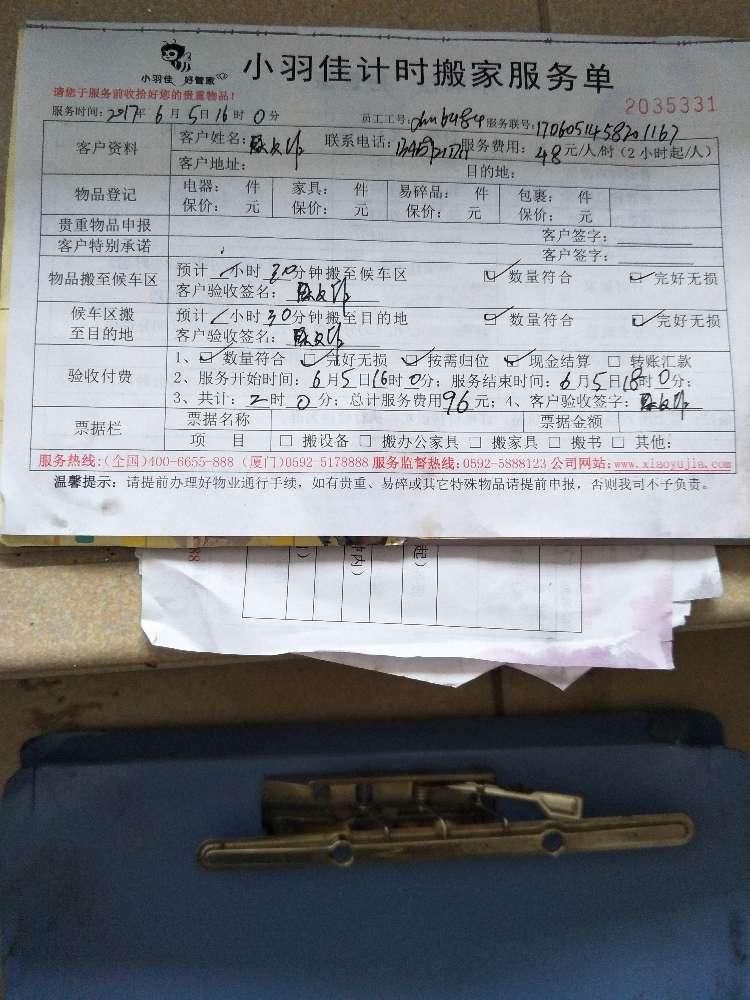 小羽佳 好管家
小羽佳计时搬家服务单
请您于服务前收拾好您的贵重物品！
2035331
服务时间：2017年 6 月 5 日 16 时 0 分 员工工号： 服务联号：1706051458201167
客户资料 客户姓名： 联系电话： 服务费用：48元/人/时（2小时起/人）
客户地址： 目的地：
物品登记 电器： 件 家具： 件 易碎品： 件 包裹： 件
保价： 元 保价： 元 保价： 元 保价： 元
贵重物品申报 客户签字：
客户特别承诺 客户签字：
物品搬至候车区 预计 小时 30分钟搬至候车区 数量符合 完好无损
客户验收签名：
候车区搬至目的地 预计 小时 30分钟搬至目的地 数量符合 完好无损
客户验收签名：
验收付费 1、 数量符合 完好无损 按需归位 现金结算 转账汇款
2、服务开始时间：6月5日16时0分；服务结束时间：6月5日18时0分；
3、共计：2时 0 分；总计服务费用96元；4、客户验收签字：
票据栏 票据名称 票据金额
项 目 搬设备 搬办公家具 搬家具 搬书 其他：
服务热线：（全国）400-6655-888（厦门）0592-5178888 服务监督热线：0592-5888123 公司网站：www.xiaoyujia.com
温馨提示：请提前办理好物业通行手续，如有贵重、易碎或其它特殊物品请提前申报，否则我司不予负责。